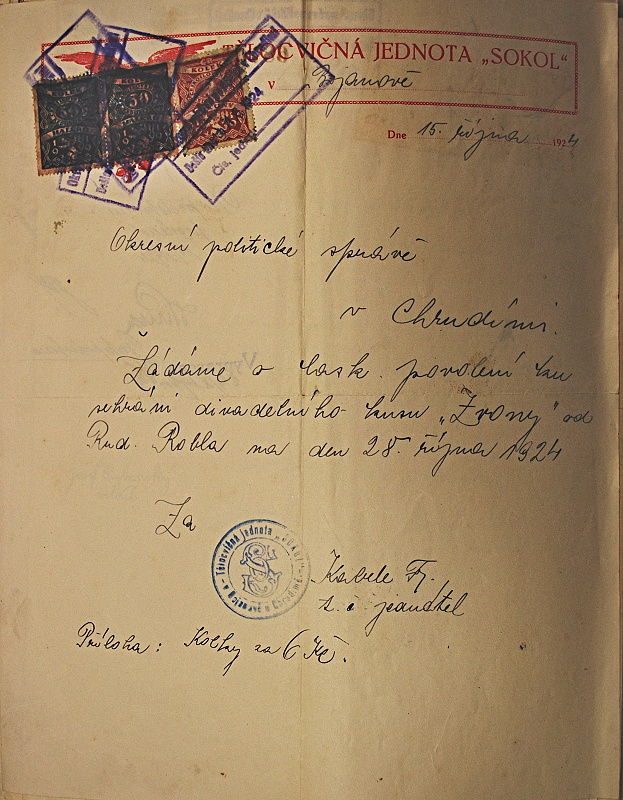 TĚLOCVIČNÁ JEDNOTA „SOKOL“
v Bojanově
Dne 15. října 1924
Okresní politické správě
v Chrudimi.
Žádáme o lask. povolení ku
sehrání divadelního kusu „Zvony“ od
Rud. Robla na den 28. října 1924
Za
Tělocvičná jednota „SOKOL“
v Bojanově u Chrudimě
Kabele Fr.
t. č. jednatel
Příloha: Kolky za 6 Kč.